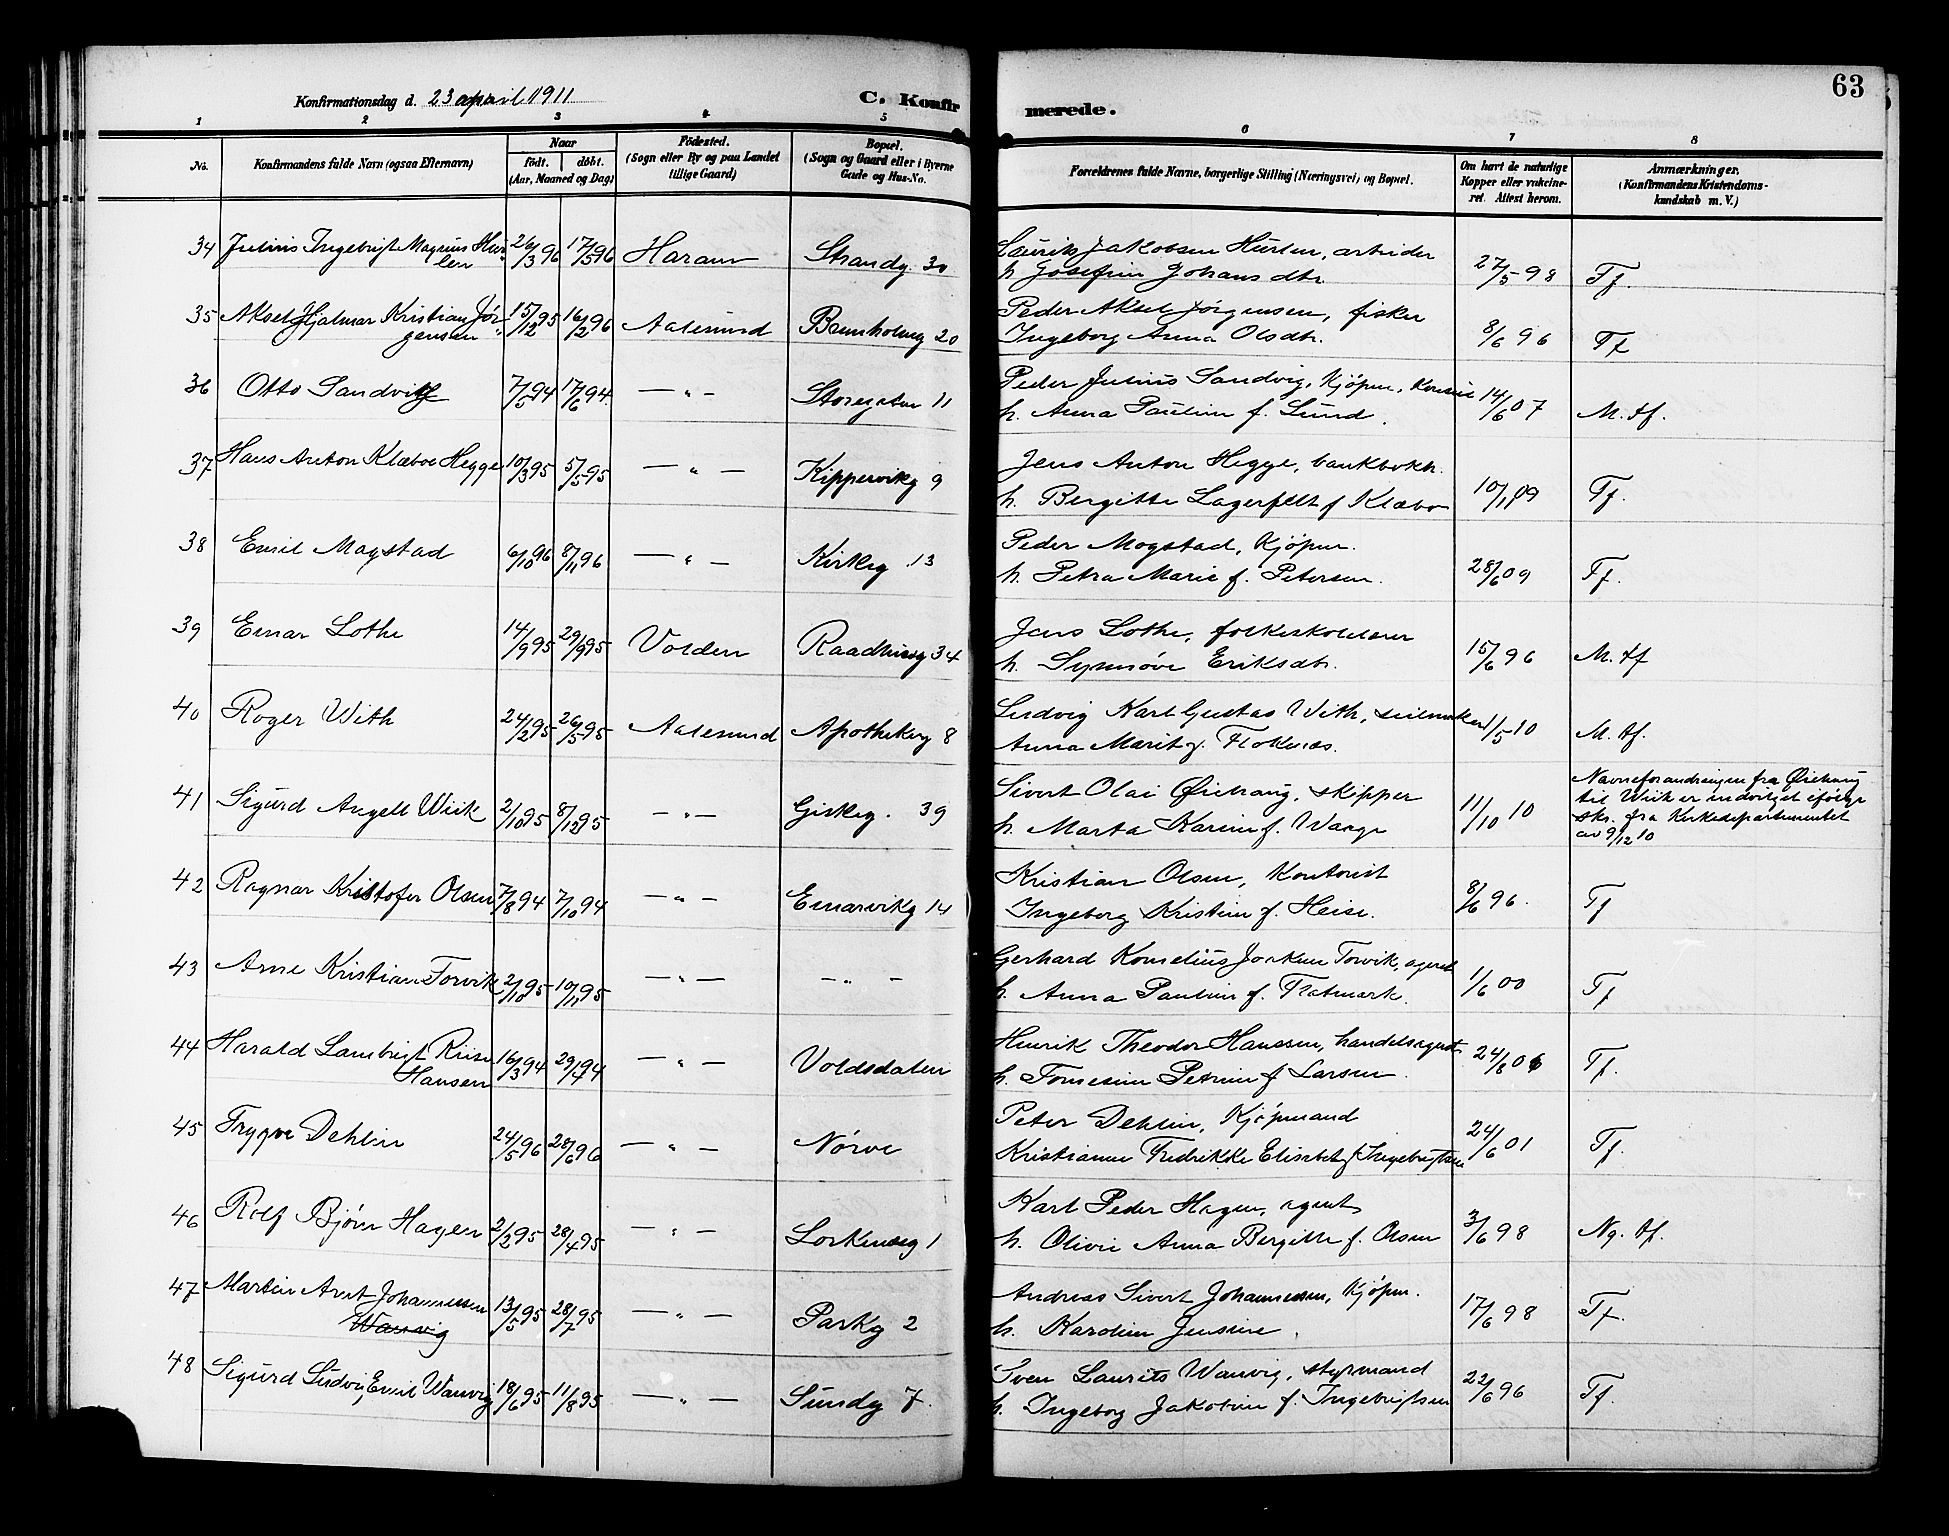 63
Konfirmationsdag d. 23 april 1911
C. Konfirmerede.
1 2 3 4 5 6 7 8
No.
Konfirmandens fulde Navn (ogsaa Efternavn)
Naar
født. døbt.
(Aar, Maaned og Dag)
Fødested.
(Sogn eller By og paa Landet
tillige Gaard)
Bopæl.
(Sogn og Gaard eller i Byerne
Gade og Hus-No.
Forældrenes fulde Navne, borgerlige Stilling (Næringsvei) og Bopæl.
Om havt de naturlige
Kopper eller vakcine-
ret. Attest herom.
Anmærkninger.
(Konfirmandens Kristendoms-
kundskab m. V.)
34 Julius Ingebrigt Magnus Hur- 26/3 96 17/5 96 Haram Strandg. 30 Laurits Jakobsen Hurlen, arbeider 27/5 98 Tf.
len h Josefine Johansdtr.
35 Aksel Hjalmar Kristian Jør- 15/12 95 16/2 96 Aalesund Brunholmg 20 Peder Aksel Jørgensen, fisker 8/6 96 Tf
gensen Ingeborg Anna Olsdtr.
36 Otto Sandvig 7/5 94 17/6 94. — " — Storegaten 11 Peder Julius Sandvig, Kjøpm., Konsul 14/6 07 M. tf.
h. Anna Pauline f. Lund.
37 Hans Anton Klæboe Hegge 10/3 95 5/5 95 — " — Kippervikg 9 Jens Anton Hegge, bankbokh. 10/1 09 Tf.
h. Bergitte Lagerfelt f Klæbo
38 Emil Mogstad 6/10 96 8/11 96 — " — Kirkeg. 13 Peder Mogstad, Kjøpm. 28/6 09 Tf.
h. Petra Marie f. Petersen.
39 Einar Lothe 14/9 95 29/9 95 Volden Raadhusg 34 Jens Lothe, folkeskolelærer 15/6 96 M. tf
h. Synnøve Eriksdtr.
40 Roger With 24/2 95 26/5 95 Aalesund Apothekerg 8 Ludvig Karl Gustav With, seilmaker 1/5 10 M. tf.
Anna Marit f. Floknes.
41 Sigurd Angell Wiik 2/10 95 8/12 95 — " — Giskeg. 39 Sivert Olai Øiehaug, skipper 11/10 10 Navneforandringen fra Øiehaug
h. Marta Karine f. Waage til Wiik er indvilget ifølge
skr. fra Kirkedepartementet
av 9/12 10
42 Ragnar Kristofer Olsen 7/8 94 7/10 94 — " — Einarvikg 14 Kristian Olsen, Kontorist 8/6 96. Tf
Ingeborg Kristine f. Heise.
43 Arne Kristian Torvik 2/10 95 10/11 95 — " — — " — Gerhard Kornelius Joakim Torvik, agent 1/6 00 Tf
h. Anna Pauline f. Flatmark.
44 Harald Lambrigt Riise 16/3 94 29/4 94 — " — Voldsdalen Henrik Theodor Hanssen, handelsagent 24/6 06 Tf.
Hansen h. Tomesine Petrine f Larsen.
45 Trygve Dehlin 24/5 96 28/6 96 — " — Nørve Peter Dehlin, Kjøpmand 24/6 01 Tf.
Kristianne Fredrikke Elisabet f. Ingebrigtsen
46 Rolf Bjørn Hagen 2/2 95 28/4 95 — " — Lorkenesg 1 Karl Peder Hagen, agent 3/6 98 Ng. tf.
h. Olivie Anna Bergitte f. Olsen
47 Martin Arnt Johannessen 13/5 95 28/7 95 — " — Parkg 2 Andreas Sivert Johannessen, Kjøpm. 17/6 98 Tf.
Wanvig h. Karoline Jensine.
48 Sigurd Ludvig Emil Wanvig 18/6 95 11/8 95 — " — Sundg 7. Sven Laurits Wanvig, styrmand 22/6 96 Tf.
h. Ingeborg Jakobine f. Ingebrigtsen